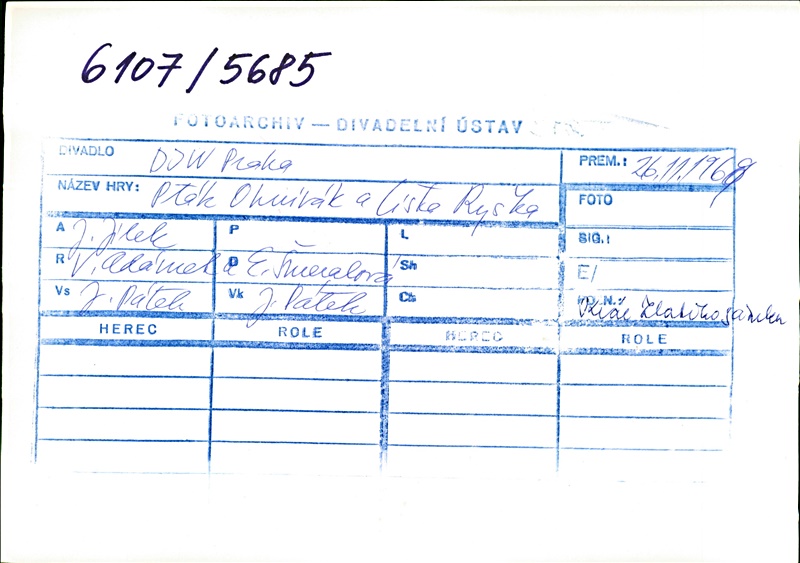 6107/5685
FOTOARCHIV — DIVADELNÍ ÚSTAV
DIVADLO DJW Praha PREM.: 26.11.1969
NÁZEV HRY: Pták Ohnivák a liška Ryška FOTO
A J. Jílek P L SIG.:
R V. Adámek a E. Šmeralová D Sh E/
Vs J. Pátek Vk J. Pátek Ch N.: Král Zlatého zámku
HEREC ROLE HEREC ROLE